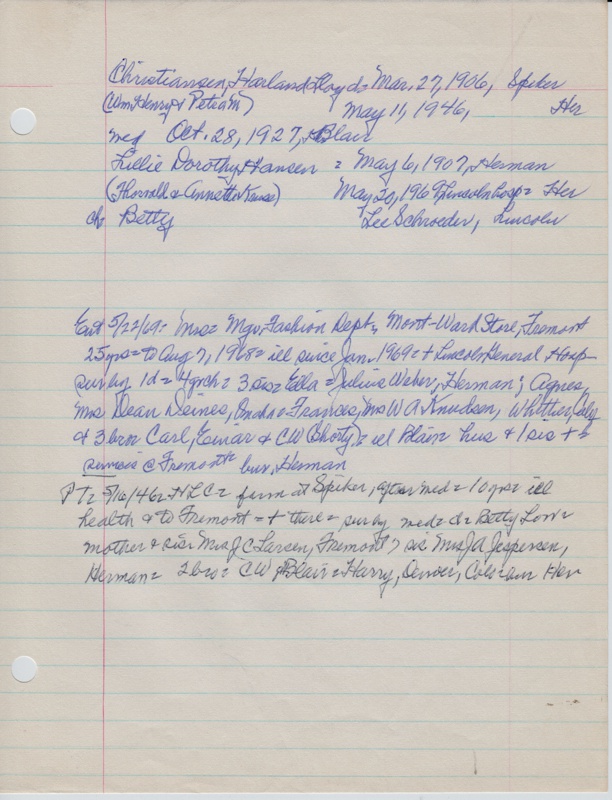 Christiansen, Harland Lloyd = Mar. 27, 1906, Spiker
(Wm Henry & Petra M) May 11, 1946, Her
med Oct. 28, 1927, Blair
Lillie Dorothy Hansen = May 6, 1907, Herman
(Thorvald & Annette Kruse) May 20, 1969, Lincoln Hosp = Her
ch Betty Lee Schroeder, Lincoln
Ent 5/22/69 = Mrs = Mgr, Fashion Dept, Mont-Ward Store, Fremont
25 yrs = to Aug 7, 1968 = ill since Jan. 1969 = + Lincoln General Hosp =
sur by 1 d = 4 grch = 3 sis = Ella = Julius Weber, Herman; Agnes,
Mrs Dean Deines, Omaha & Frances, Mrs W A Knudsen, Whittier, Calif
& 3 bro Carl, Einar & CW (Shorty) = all Blair hus & 1 sis + =
services @ Fremont = bur, Herman
P T = 5/16/46 = HLC = farm at Spiker, after med = 10 yrs = ill
health & to Fremont = + there = sur by med = d = Betty Lou =
mother & sis = Mrs J C Larsen, Fremont, sis Mrs J A Jespersen,
Herman = 2 bro = CW, Blair = Harry, Denver, Colo = Her